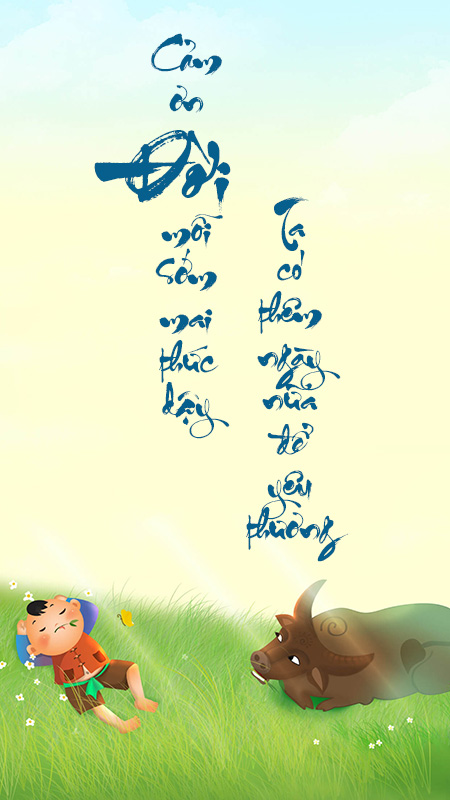 Cảm
ơn
Đời
mỗi
sớm
mai
thức
dậy
Ta
có
thêm
ngày
nữa
để
yêu
thương